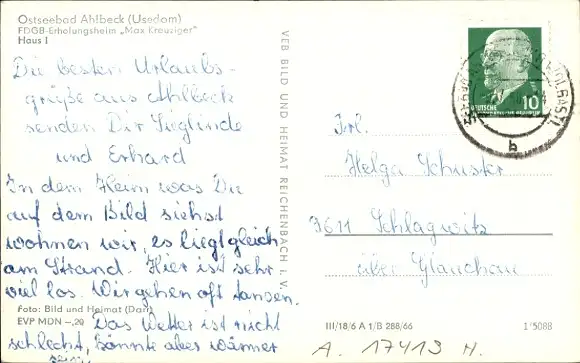 Ostseebad Ahlbeck (Usedom)
FDGB-Erholungsheim „Max Kreuziger"
Haus I
Die besten Urlaubs-
grüße aus Ahlbeck
senden Dir Sieglinde
und Erhard
In dem Heim was Du
auf dem Bild siehst
wohnen wir, es liegt gleich
am Strand. Hier ist sehr
viel los. Wir gehen oft tanzen.
Foto: Bild und Heimat (Darr)
EVP MDN –,20
Das Wetter ist nicht
schlecht, könnte aber wärmer
sein
VEB BILD UND HEIMAT REICHENBACH I. V.
10
DEUTSCHE
WOLGAST
b
Frl.
Helga Schuster
9611 Schlagwitz
über Glauchau
III/18/6 A 1/B 288/66
1/5088
A. 17413 H.